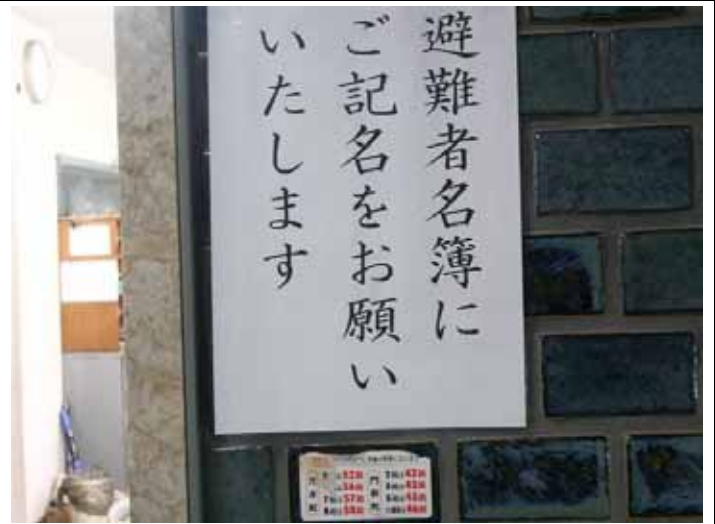 避難者名簿に
ご記名をお願い
いたします